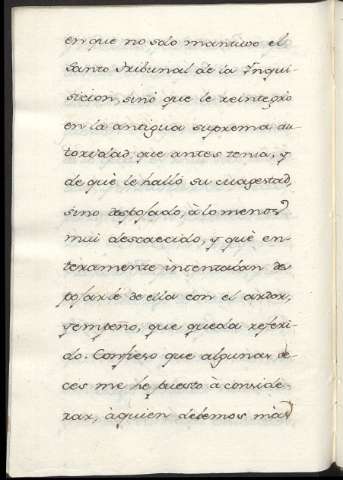 en que no solo mantuvo el
Santo Tribunal de la Ynqui-
sicion, sinò que le reintegrò
en la antigua suprema au-
toridad, que antes tenia, y
de què le hallò su Magestad,
sino despojado, à lo menos
mui descaecido, y què en-
teramente intentaban des
pojarle de ella con el ardor,
y empeño, que queda referi-
do. Confieso que algunas ve-
ces me he puesto à conside-
rar, à quien debemos màs